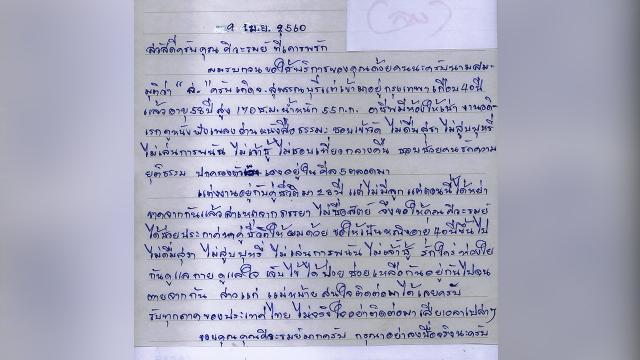 (ลบ)
9 เม.ย. 2560
สวัสดีครับคุณ ศิวะรมย์ ที่เคารพรัก
ผมรบกวนขอใช้บริการของคุณด้วยคนนะครับนามสม-
มุติว่า "ส่ง" ครับ เกิดจ.สุพรรณบุรีแต่เข้ามาอยู่กรุงเทพฯ เกือบ 40 ปี
แล้วอายุ 58 ปี สูง 170 ซม. น้ำหนัก 55 ก.ก. อาชีพมีห้องให้เช่า งานอดิ-
เรกดูหนังฟังเพลง อ่านหนังสือธรรมะ ชอบเข้าวัด ไม่ดื่มสุรา ไม่สูบบุหรี่
ไม่เล่นการพนัน ไม่เจ้าชู้ ไม่ชอบเที่ยวกลางคืน ชอบช่วยคนรักความ
ยุติธรรม ปกครองตนเองอยู่ในศีล 5 ตลอดมา
แต่งงานอยู่กับคู่ชีวิตมา 28 ปี แต่ไม่มีลูก แต่ตอนนี้ได้หย่า
ขาดจากกันแล้วสาเหตุจากภรรยา ไม่ซื่อสัตย์ จึงขอให้คุณศิวะรมย์
ได้ช่วยประกาศหาคู่ชีวิตให้ผมด้วย ขอให้เป็นหญิงอายุ 40 ปีขึ้นไป
ไม่ดื่มสุรา ไม่สูบบุหรี่ ไม่เล่นการพนัน ไม่เจ้าชู้ รักใคร่ห่วงใย
กันดูแลกาย ดูแลใจ เจ็บไข้ได้ป่วยช่วยเหลือกันอยู่กันไปจน
ตายจากกัน สาวแก่ แม่หม้าย สนใจติดต่อมาได้เลยครับ
รับทุกภาคของประเทศไทย ไม่จริงใจอย่าติดต่อมา เสียเวลาเปล่าๆ
ขอบคุณคุณศิวะรมย์มากครับ กรุณาอย่าลงชื่อจริงนะครับ